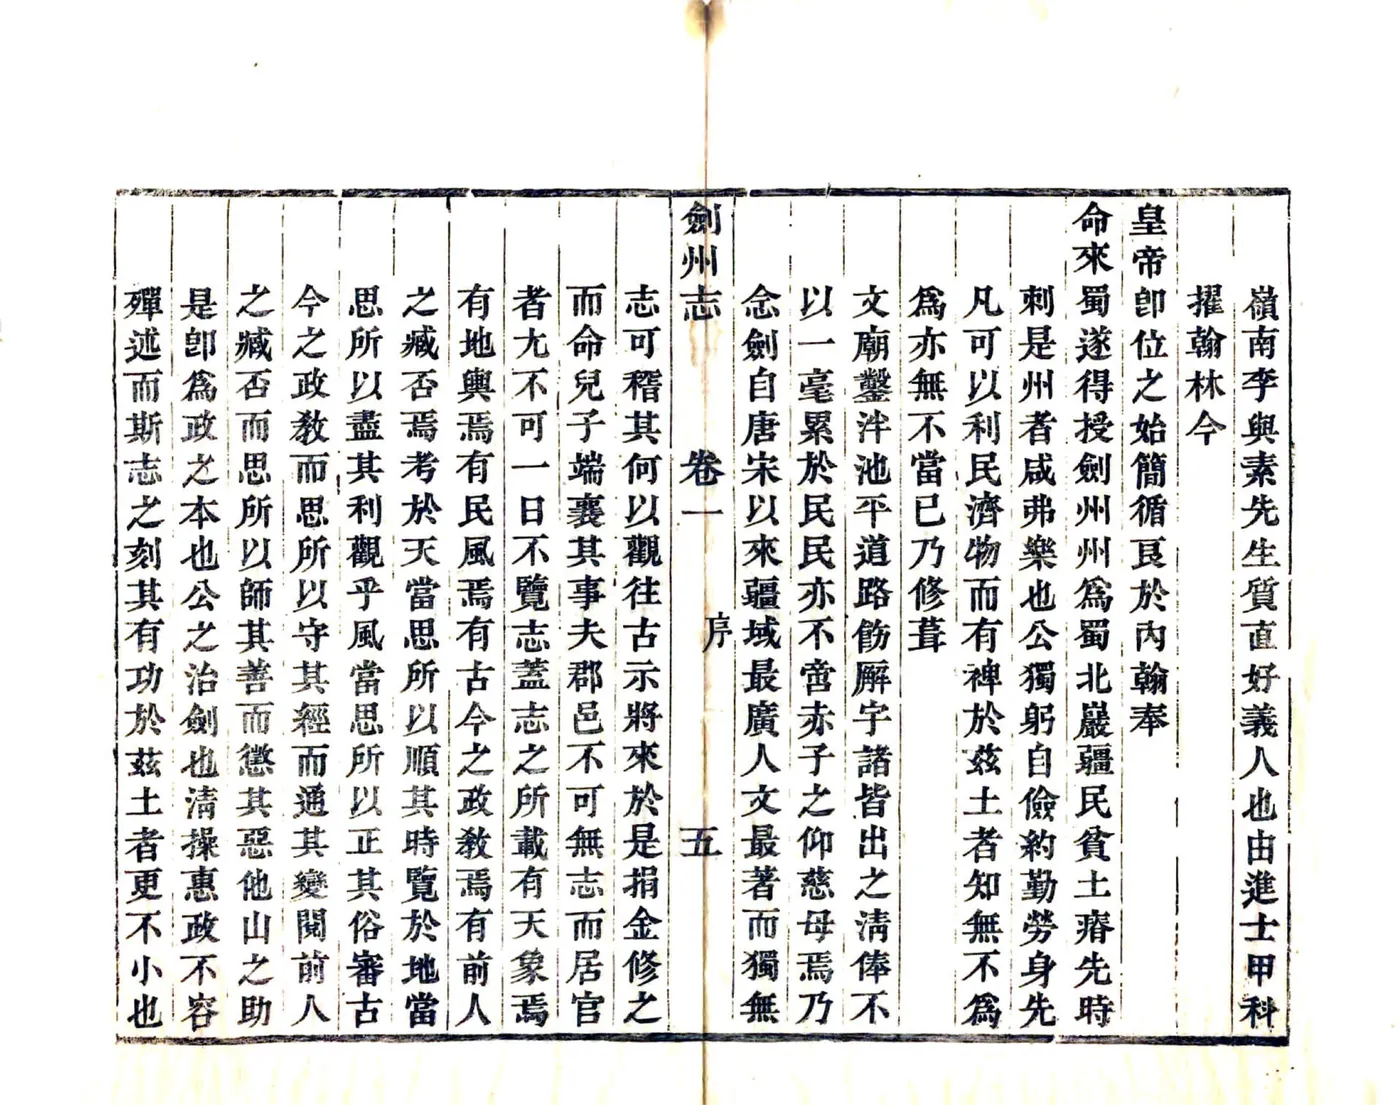 嶺南李與素先生質直好義人也由進士甲科
擢翰林今
皇帝卽位之始簡循良於內翰奉
命來蜀遂得授劍州州爲蜀北巖疆民貧土瘠先時
刺是州者咸弗樂也公獨躬自儉約勤勞身先
凡可以利民濟物而有裨於茲土者知無不爲
爲亦無不當已乃修葺
文廟鑿泮池平道路飭廨宇諸皆出之清俸不
以一毫累於民民亦不啻赤子之仰慈母焉乃
念劍自唐宋以來疆域最廣人文最著而獨無
劍州志 卷一 序 五
志可稽其何以觀往古示將來於是捐金修之
而命兒子端襄其事夫郡邑不可無志而居官
者尤不可一日不覽志蓋志之所載有天象焉
有地輿焉有民風焉有古今之政敎焉有前人
之臧否焉考於天當思所以順其時覽於地當
思所以盡其利觀乎風當思所以正其俗審古
今之政敎而思所以守其經而通其變閱前人
之臧否而思所以師其善而懲其惡他山之助
是卽爲政之本也公之治劍也清操惠政不容
殫述而斯志之刻其有功於茲土者更不小也